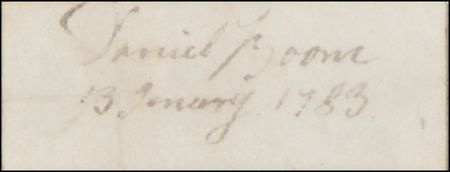 Daniel Boone
13 Jenuary 1783